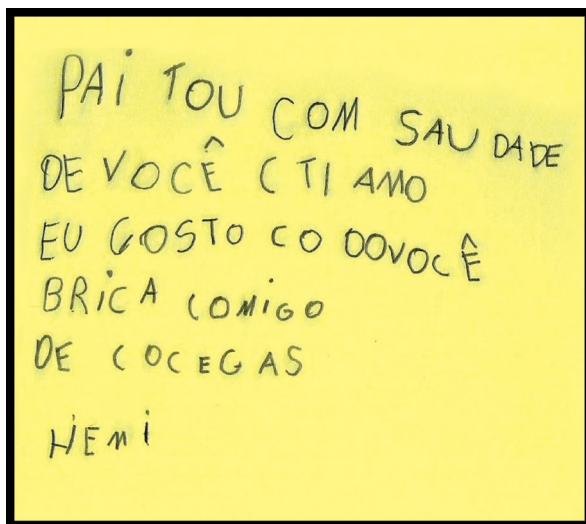 PAI TOU COM SAUDADE
DE VOCÊ C TI AMO
EU GOSTO CO DOVOCÊ
BRICA COMIGO
DE COCEGAS
HEMI